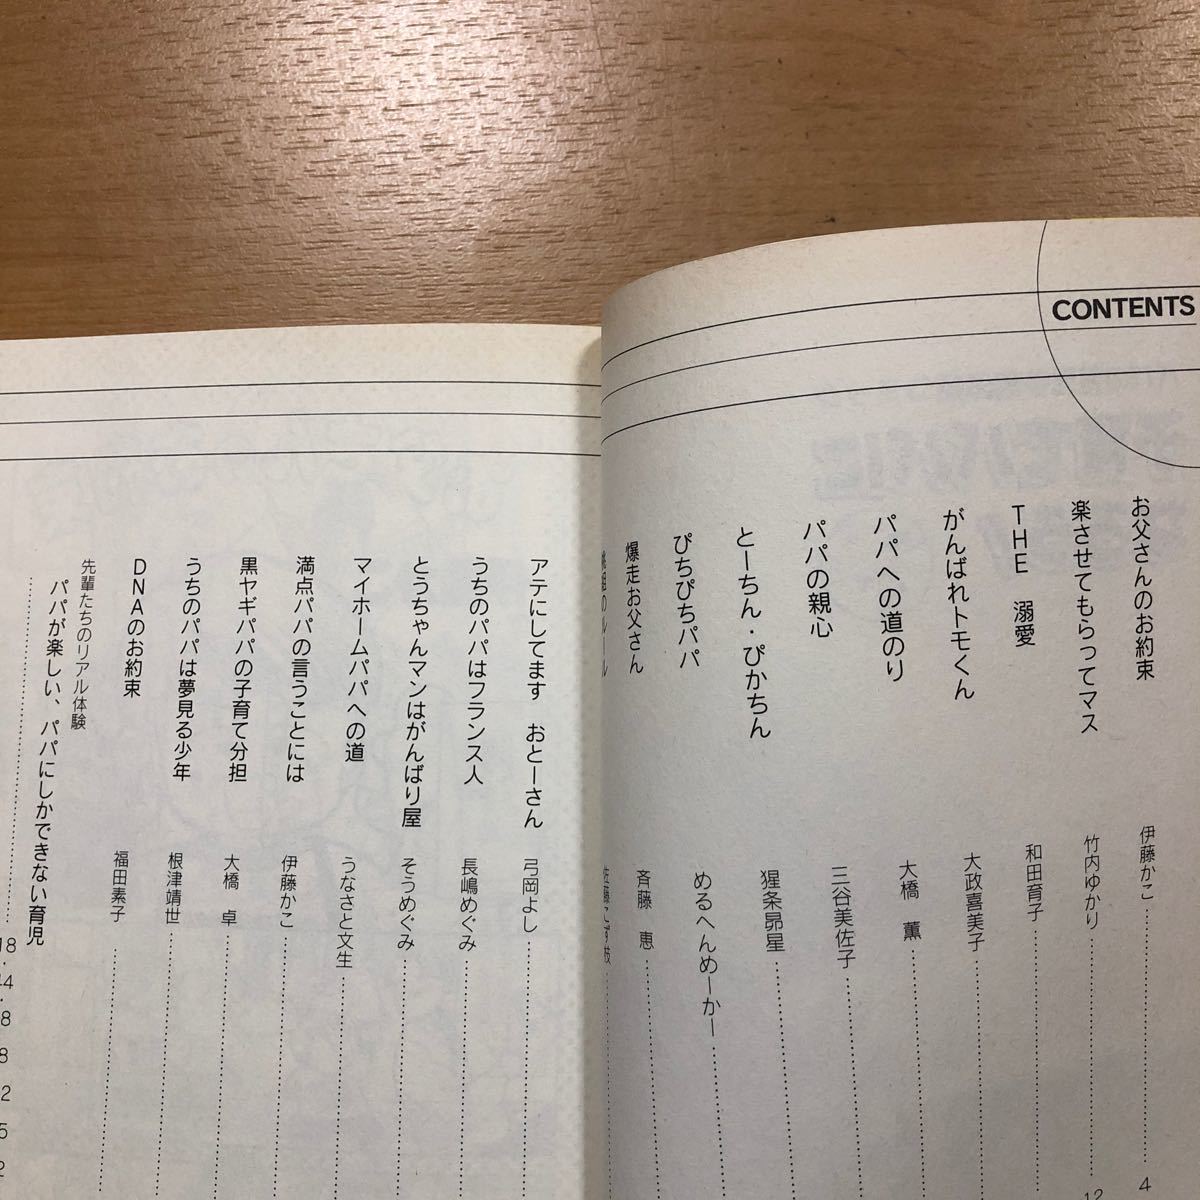 CONTENTS
お父さんのお約束 伊藤かこ 4
楽させてもらってマス 竹内ゆかり 12
THE 溺愛 和田育子
がんばれトモくん 大政喜美子
パパへの道のり 大橋 薫
パパの親心 三谷美佐子
とーちん・ぴかちん 猩条昴星
ぴちぴちパパ めるへんめーかー
爆走お父さん 斉藤 恵
組のルール 佐藤こず枝
アテにしてます おとーさん 弓岡よし
うちのパパはフランス人 長嶋めぐみ
とうちゃんマンはがんばり屋 そうめぐみ
マイホームパパへの道 うなさと文生
満点パパの言うことには 伊藤かこ
黒ヤギパパの子育て分担 大橋 卓
うちのパパは夢見る少年 根津靖世
DNAのお約束 福田素子
先輩たちのリアル体験
パパが楽しい、パパにしかできない育児